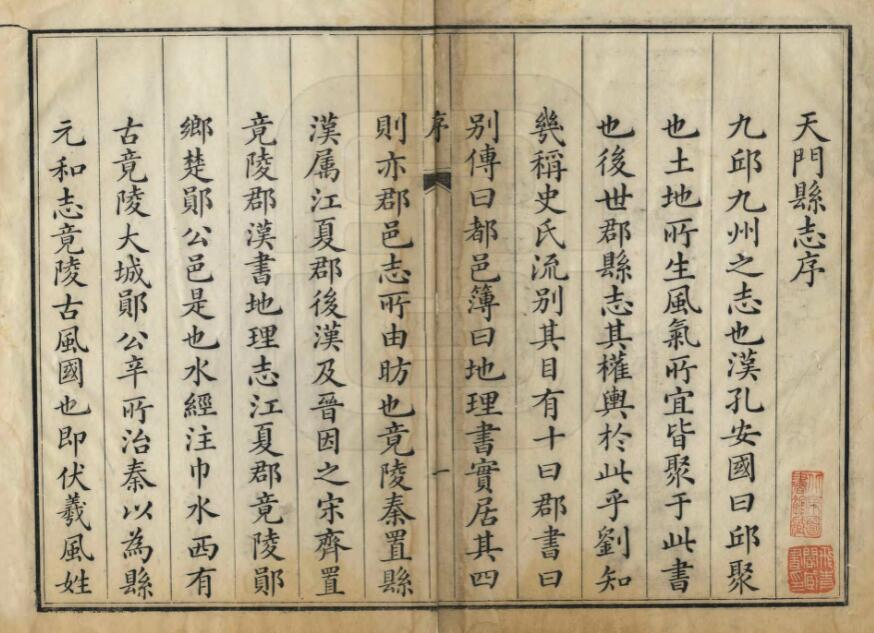 天門縣志序
九邱九州之志也漢孔安國曰邱聚
也土地所生風氣所宜皆聚于此書
也後世郡縣志其權輿於此乎劉知
幾稱史氏流別其目有十曰郡書曰
別傳曰都邑簿曰地理書實居其四
序
一
則亦郡邑志所由昉也竟陵秦置縣
漢屬江夏郡後漢及晉因之宋齊置
竟陵郡漢書地理志江夏郡竟陵鄖
鄉楚鄖公邑是也水經注巾水西有
古竟陵大城鄖公辛所治秦以為縣
元和志竟陵古風國也即伏羲風姓